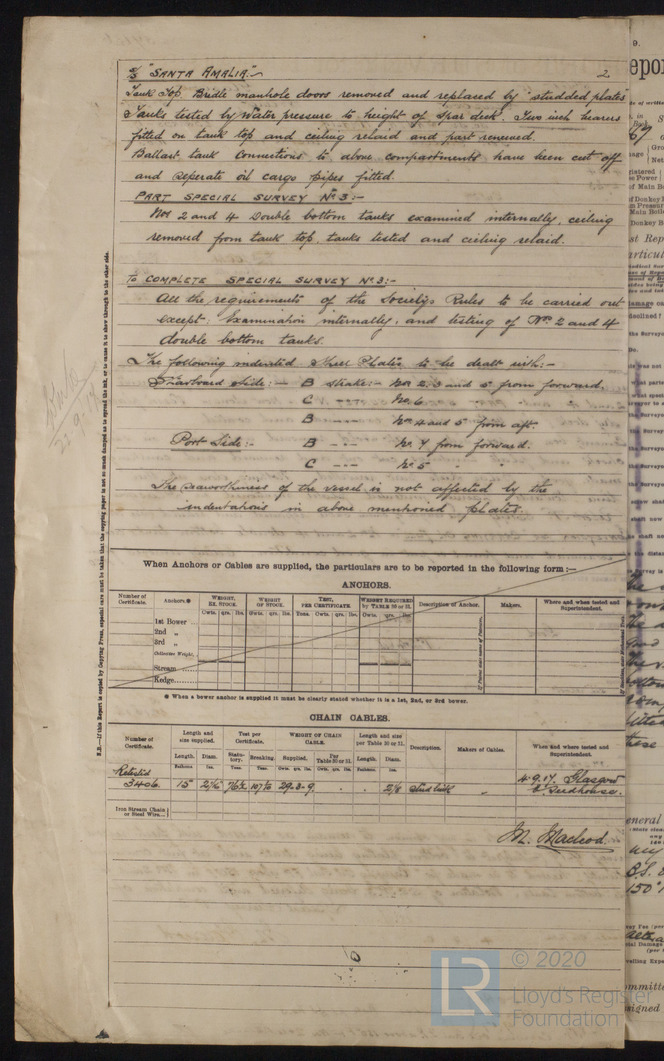 S/S "SANTA AMALIA":-
2
Tank Top Bridle manhole doors removed and replaced by studded plates
Tanks tested by water pressure to height of spar deck. Two inch bearers
fitted on tank top and ceiling relaid and part renewed.
Ballast tank connections to above compartments have been cut off
and seperate oil cargo pipes fitted.
PART SPECIAL SURVEY No 3:-
Nos 2 and 4 Double bottom tanks examined internally, ceiling
removed from tank top, tanks tested and ceiling relaid.
TO COMPLETE SPECIAL SURVEY No 3:-
All the requirements of the Society's Rules to be carried out
except: Examination internally, and testing of Nos 2 and 4
double bottom tanks.
The following indented Shell Plates to be dealt with:-
Starboard Side:- B strake:- Nos 2, 3 and 5 from forward.
C No. 6
B Nos 4 and 5 from aft.
Port Side:- B No. 7 from forward.
C No. 5 " "
The seaworthiness of the vessel is not affected by the
indentations in above mentioned plates.
22.9.17
N.B.—If this Report is copied by Copying Press, especial care must be taken that the copying paper is not so much damped as to spread the ink, or to cause it to show through to the other side.
When Anchors or Cables are supplied, the particulars are to be reported in the following form :—
ANCHORS.
Number of Certificate. Anchors.* WEIGHT, EX. STOCK. WEIGHT OF STOCK. TEST, PER CERTIFICATE. WEIGHT REQUIRED by TABLE 30 or 31. Description of Anchor. Makers. Where and when tested and Superintendent.
Cwts. qrs. lbs. Cwts. qrs. lbs. Tons. Cwt. qrs. lbs. Cwts. qrs. lbs.
1st Bower
2nd "
3rd "
Collective Weight.
Stream
Kedge
* When a bower anchor is supplied it must be clearly stated whether it is a 1st, 2nd, or 3rd bower.
CHAIN CABLES.
Number of Certificate. Length and size supplied. Test per Certificate. WEIGHT OF CHAIN CABLE. Length and size per Table 30 or 31. Description. Makers of Cables. When and where tested and Superintendent.
Length. Diam. Statutory. Breaking. Supplied. Per Table 30 or 31. Length. Diam.
Fathoms. Ins. Tons. Tons. Cwts. qrs. lbs. Cwts. qrs. lbs. Fathoms. Ins.
Retested
3406 15 29-3-9 2 1/8 Stud link 4.9.17 Glasgow
Iron Stream Chain or Steel Wire
M. Macleod.
LR
© 2020
Lloyd's Register
Foundation